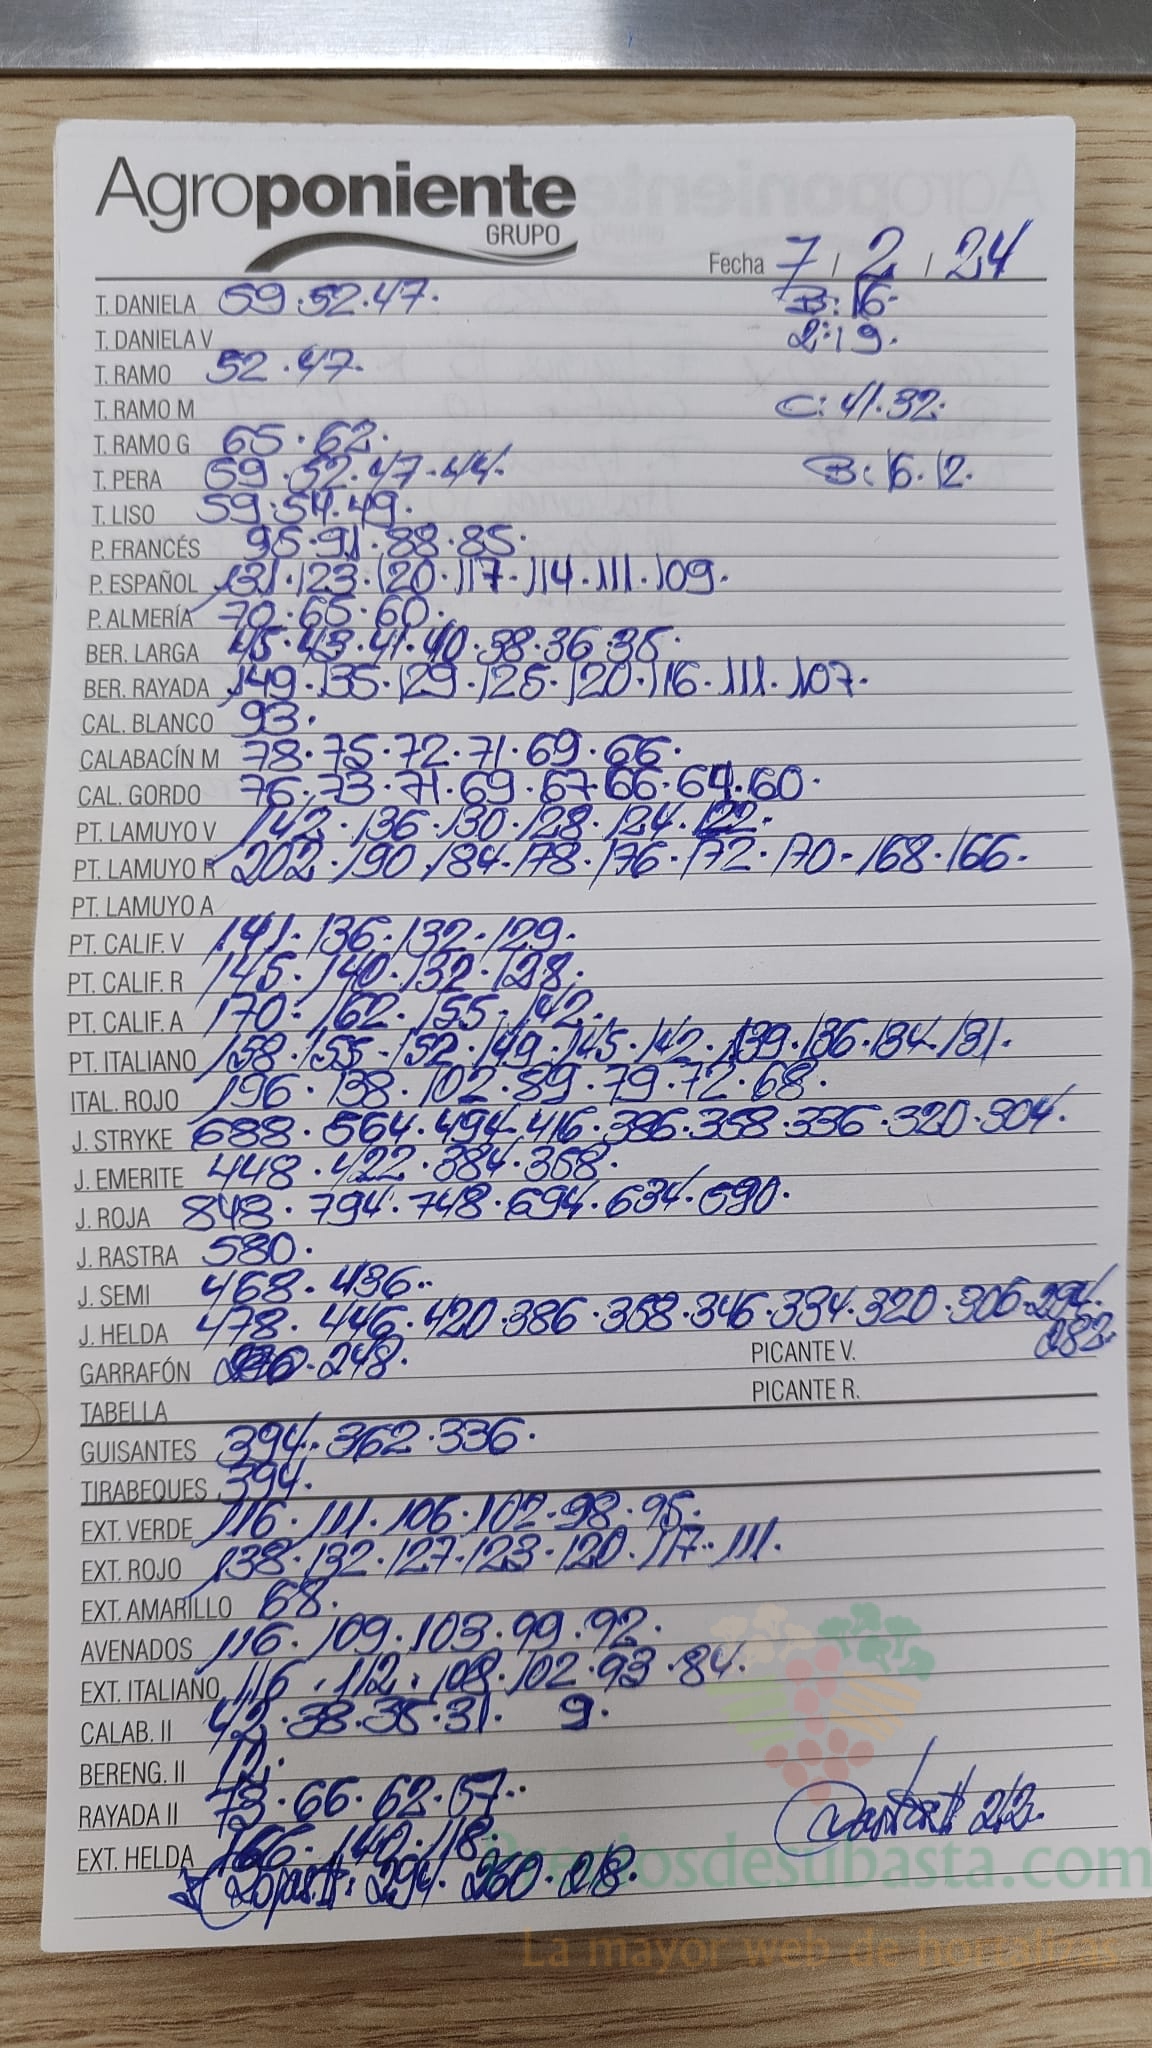 Agroponiente
GRUPO
Fecha 7 / 2 / 24
T. DANIELA 59.52.47. B: 16.
T. DANIELA V 2: 19.
T. RAMO 52.47.
T. RAMO M C: 41.32.
T. RAMO G 65.62.
T. PERA 59.52.47.44. B: 16.12.
T. LISO 59.54.49.
P. FRANCÉS 95.91.88.85.
P. ESPAÑOL 131.123.120.117.114.111.109.
P. ALMERÍA 70.65.60.
BER. LARGA 45.43.41.40.38.36.35.
BER. RAYADA 149.135.129.125.120.116.111.107.
CAL. BLANCO 93.
CALABACÍN M 78.75.72.71.69.66.
CAL. GORDO 76.73.71.69.67.66.64.60.
PT. LAMUYO V 142.136.130.128.124.122.
PT. LAMUYO R 202.190.184.178.176.172.170.168.166.
PT. LAMUYO A
PT. CALIF. V 141.136.132.129.
PT. CALIF. R 145.140.132.128.
PT. CALIF. A 170.162.155.142.
PT. ITALIANO 158.155.152.149.145.142.139.136.134.131.
ITAL. ROJO 196.138.102.89.79.72.68.
J. STRYKE 688.564.494.416.386.358.336.320.304.
J. EMERITE 448.422.384.358.
J. ROJA 848.794.748.694.634.590.
J. RASTRA 580.
J. SEMI 468.436..
J. HELDA 478.446.420.386.358.346.334.320.306.294.
282.
GARRAFÓN 248. PICANTE V.
PICANTE R.
TABELLA
GUISANTES 394.362.336.
TIRABEQUES 394.
EXT. VERDE 116.111.106.102.98.95.
EXT. ROJO 138.132.127.123.120.117.111.
EXT. AMARILLO 68.
AVENADOS 116.109.103.99.92.
EXT. ITALIANO 116.112.108.102.93.84.
CALAB. II 42.38.35.31. 9.
BERENG. II 12.
RAYADA II 73.66.62.57..
212.
EXT. HELDA 166.140.118.
294.260.218.
Preciosdesubasta.com
La mayor web de hortalizas